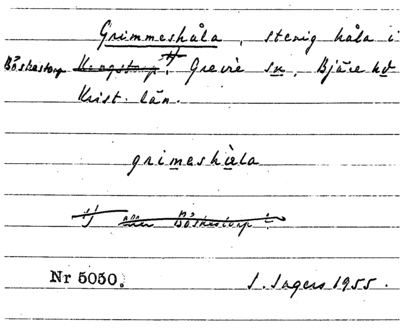 Grimmeshåla, stenig håla i
Böskestorp Kingstorp 1), Grevie sn, Bjäre hd
Krist. län.
grimeshåla
1) eller Böskestorp?
Nr 5050. S. Sagers 1955.